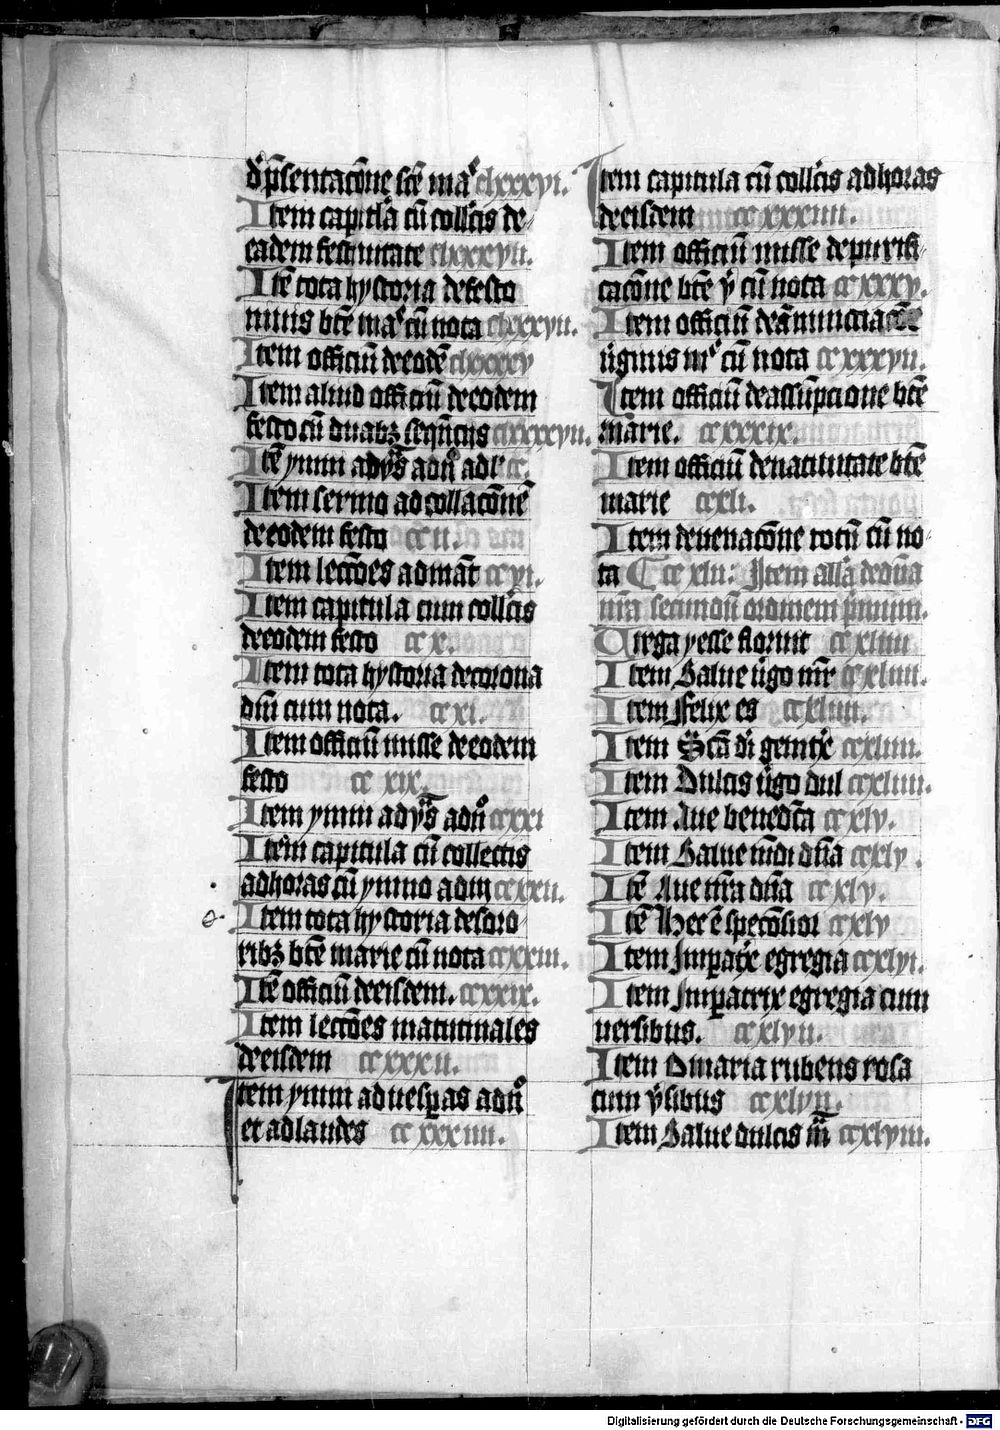 d' p̄sentacōne sc̄e ma' clxxxvi.
Item capitl'a cū coll'cis de
eadem festiuitate clxxxvii.
Itē tota hystoria de festo
niuis bt̄e ma' cū nota clxxxvii.
Item officiū de eodē
Item aliud officiū de eodem
festo cū duabꝫ sequēcijs
Itē ymni ad vs̄ ad
Item sermo ad collacōnē
de eodem festo cc ii.
Item lecc̄oes ad mat̄ cc vi.
Item capitula cum coll'cis
de eodem festo cc x.
Item tota hystoria de corona
dn̄i cum nota. cc xi.
Item officiū misse de eodem
festo cc xix.
Item ymni ad vs̄ ccxxi
Item capitula cū collectis
ad horas cū ymno ccxxii.
Item tota hystoria de soro-
ribꝫ bt̄e marie cū nota ccxxiii.
Itē officiū de eisdem. ccxxix.
Item lecc̄oes matutinales
de eisdem cc xxxii.
Item ymni ad vesp̄as
et ad laudes cc xxxiiii.
Item capitula cū coll'cis ad horas
de eisdem cc xxxiiii.
Item officiū misse de purifi-
cacōne bt̄e v' cū nota cc xxxv.
Item officiū de ānuncciacōe
v'ginis m' cū nota cc xxxvii.
Item officiū de assūpcione bt̄e
marie. cc xxxix.
Item officiū de natiuitate bt̄e
marie ccxli.
Item de uenacōne totū cū no-
ta cc xlii: Item all'a de dn̄a
nr̄a secundū ordinem p̄mum.
Virga yesse floruit cc xliiii.
Item Salue v'go mr̄ cc xliiii.
Item Felix es ccxliiii.
Item Scā di genit'x ccxliiii.
Item Dulcis v'go dul ccxliiii.
Item Aue benedc̄a ccxlv.
Item Salue mūdi dn̄a ccxlv.
Itē Aue nr̄a dn̄a ccxlv.
Itē Hec ē specōsior ccxlv
Item Imp̄at'x egregia ccxlvi.
Item Imp̄atrix egregia cum
uersibus. ccxlvii.
Item O maria rubens rosa
cum v'sibus ccxlvii.
Item Salue dulcis ccxlviii.
Digitalisierung gefördert durch die Deutsche Forschungsgemeinschaft - DFG